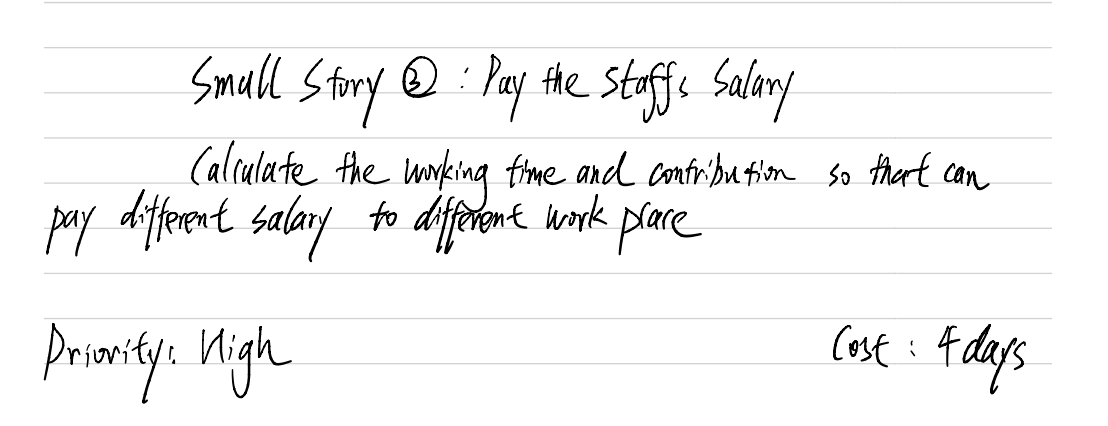 Small Story ③ : Pay the staffs Salary
Calculate the working time and contribution so that can
pay different salary to different work place
Priority: High
Cost : 4 days